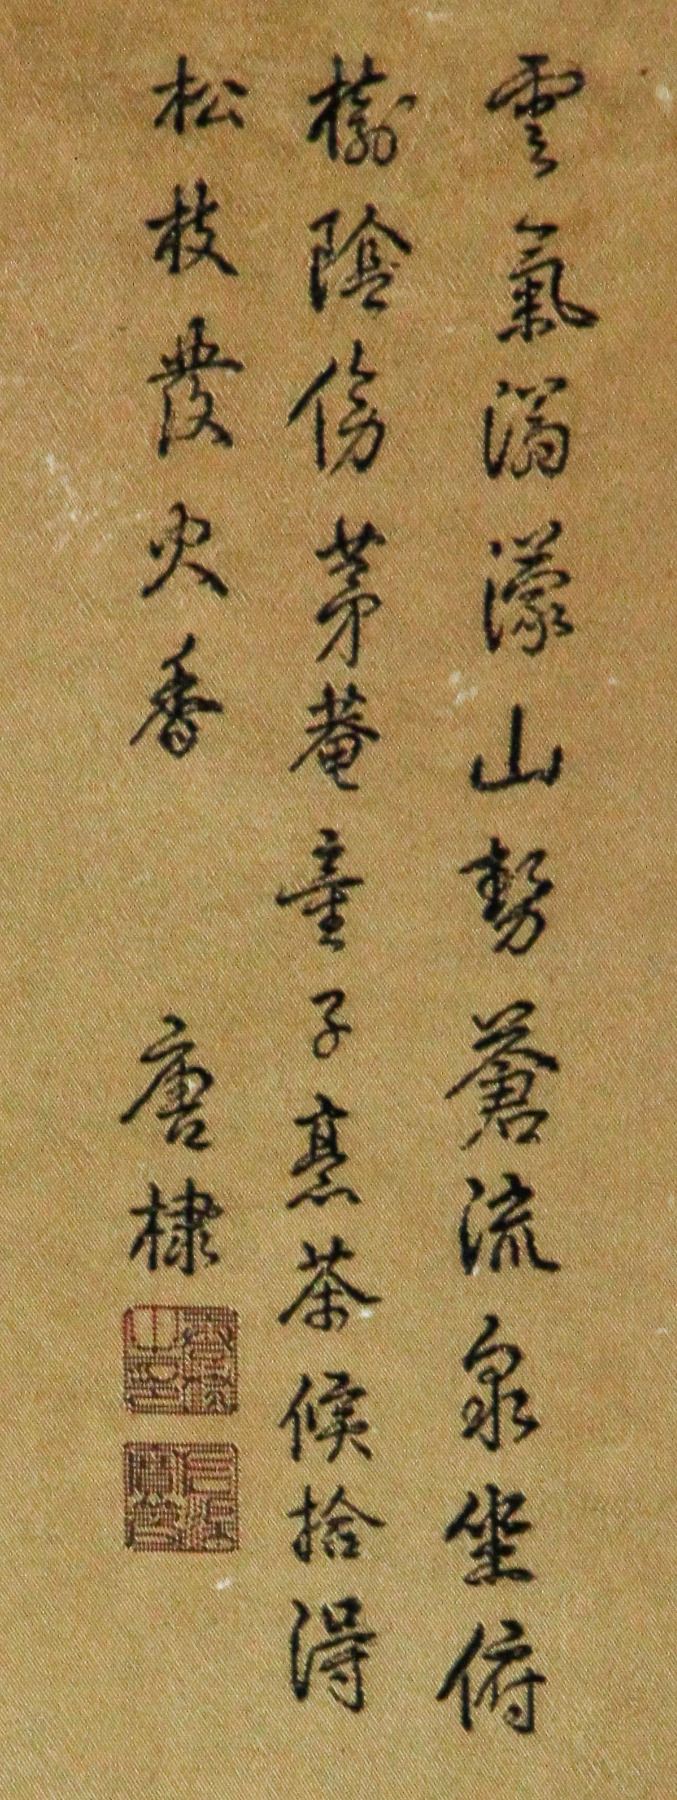 雲氣滃濛山勢蒼流泉坐俯
檐陰傍茅菴童子烹茶候拾得
松枝發火香
唐棣